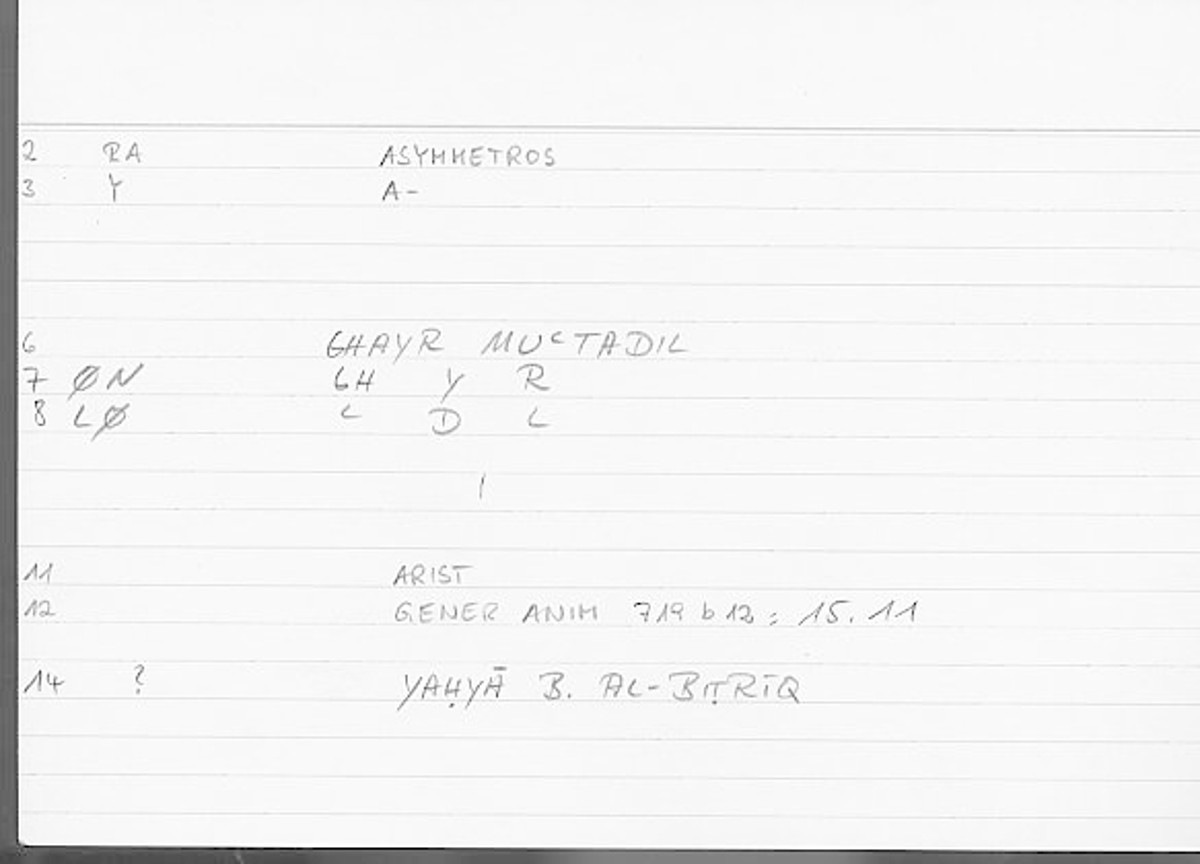 2 RA ASYMMETROS
3 Y A-
6 GHAYR MUʿTADIL
7 ØN GH Y R
8 LØ ʿ D L
/
11 ARIST
12 GENER ANIM 719 b 12 ; 15.11
14 ? YAḤYĀ B. AL-BIṬRĪQ